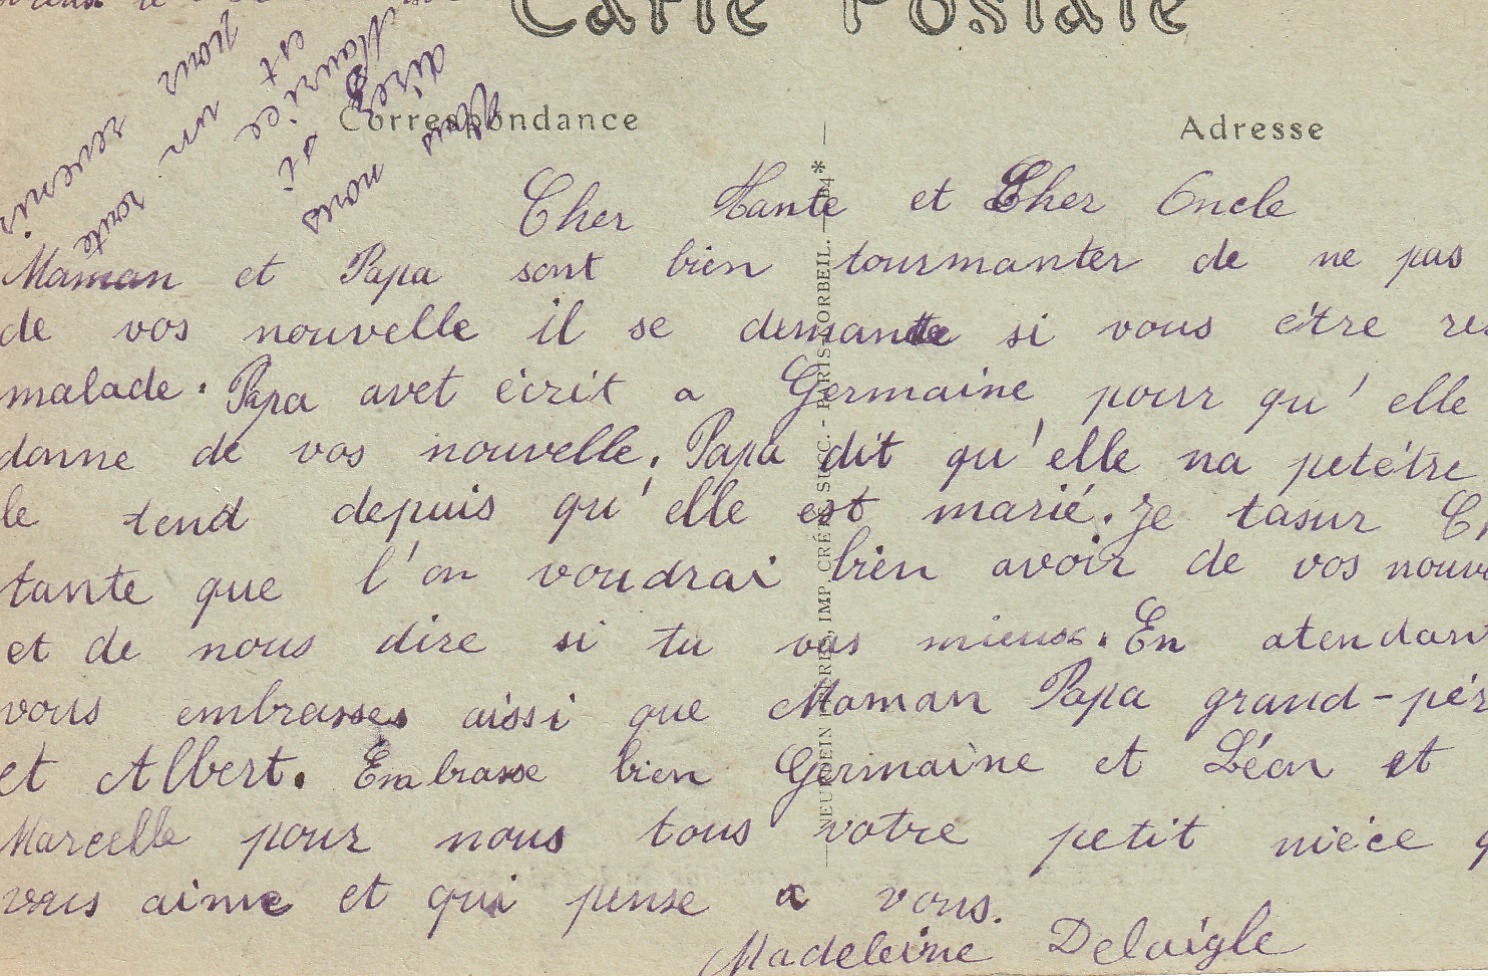 Carte Postale
Correspondance
Adresse
Vous nous
direz si
Maurice
est en route
pour revenir
Cher Tante et Cher Oncle
Maman et Papa sont bien tourmanter de ne pas
de vos nouvelle il se demande si vous être
malade. Papa avet écrit a Germaine pour qu'elle
donne de vos nouvelle. Papa dit qu'elle na petétre
le tend depuis qu'elle est marié. Je tasur
tante que l'on voudrai bien avoir de vos
et de nous dire si tu vas mieux. En atendant
vous embrasses aissi que Maman Papa grand-pér
et Albert. Embrasse bien Germaine et Léon et
Marcelle pour nous tous votre petit niéce
vous aime et qui pense a vous.
Madeleine Delaigle
CRÉTÉ SUCC. - PARIS, CORBEIL.